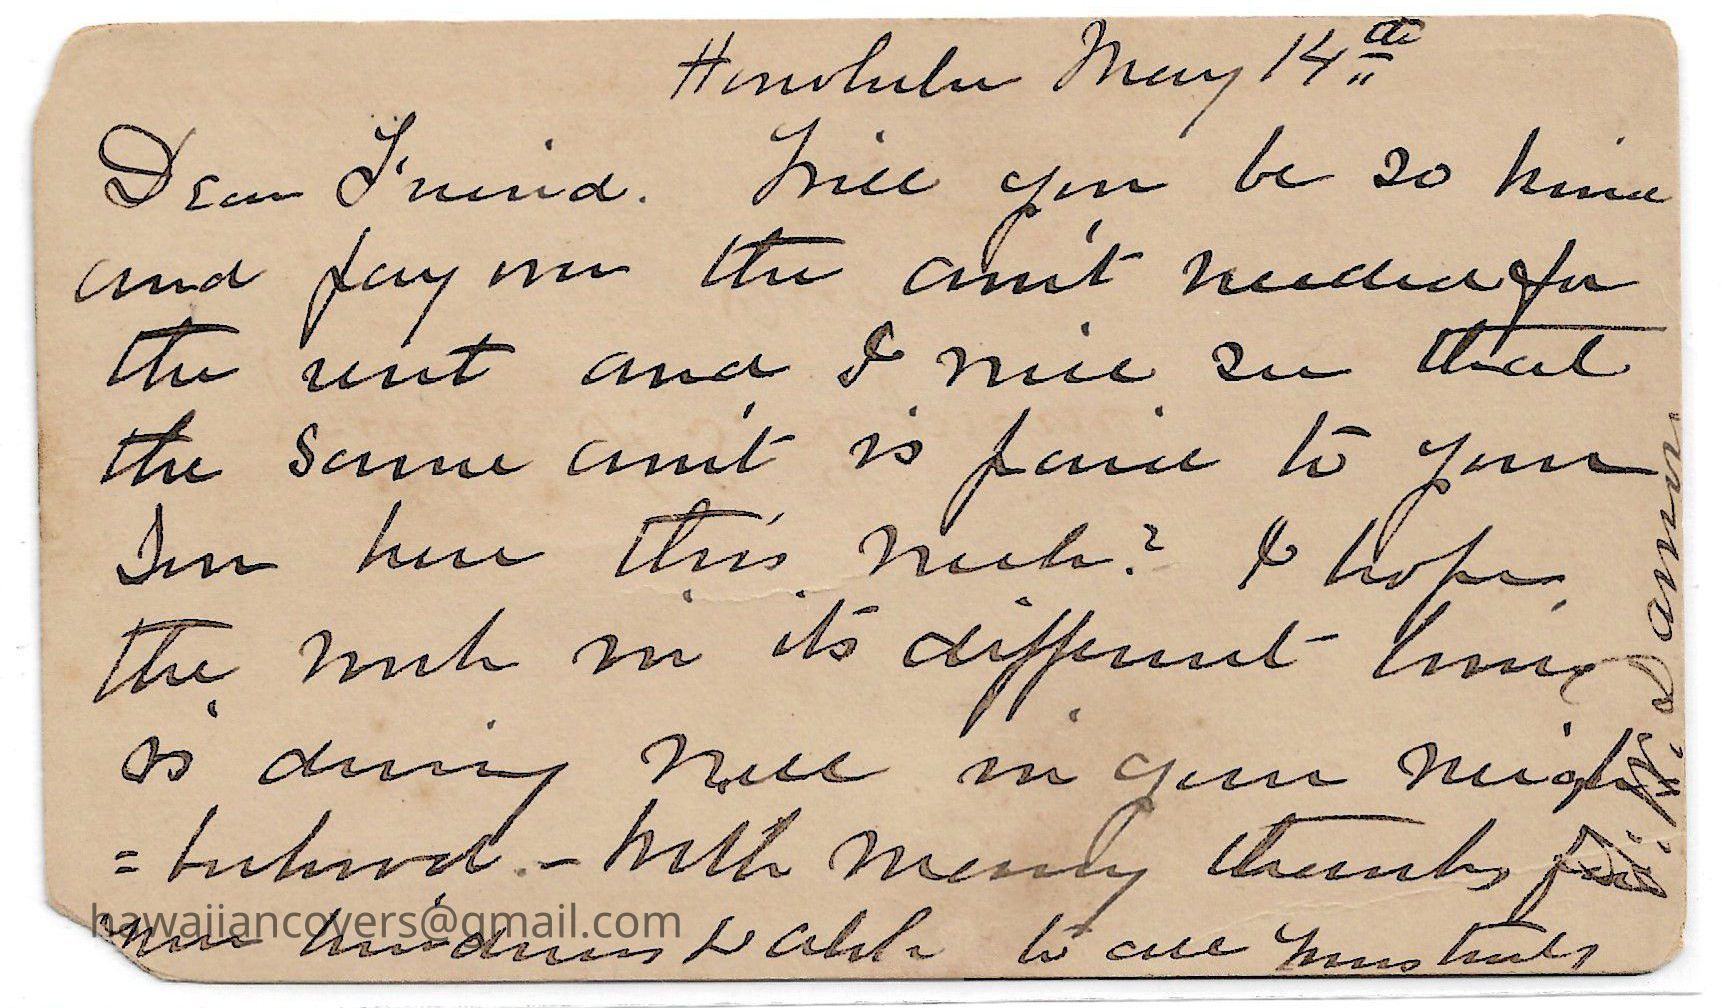 Honolulu May 14th
Dear Friend. Will you be so kind
and pay over the am't needed for
the rent and I will see that
the same am't is paid to your
Son here this week? I hope
the work in its different lines
is doing well in your neigh
=borhood. - With many thanks for
your kindness & aloha to all yours truly
W. Damon
hawaiiancovers@gmail.com